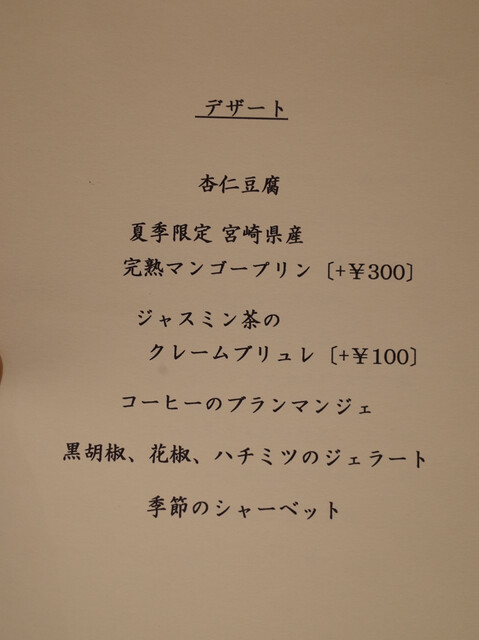 デザート
杏仁豆腐
夏季限定 宮崎県産
完熟マンゴープリン〔+¥300〕
ジャスミン茶の
クレームブリュレ〔+¥100〕
コーヒーのブランマンジェ
黒胡椒、花椒、ハチミツのジェラート
季節のシャーベット